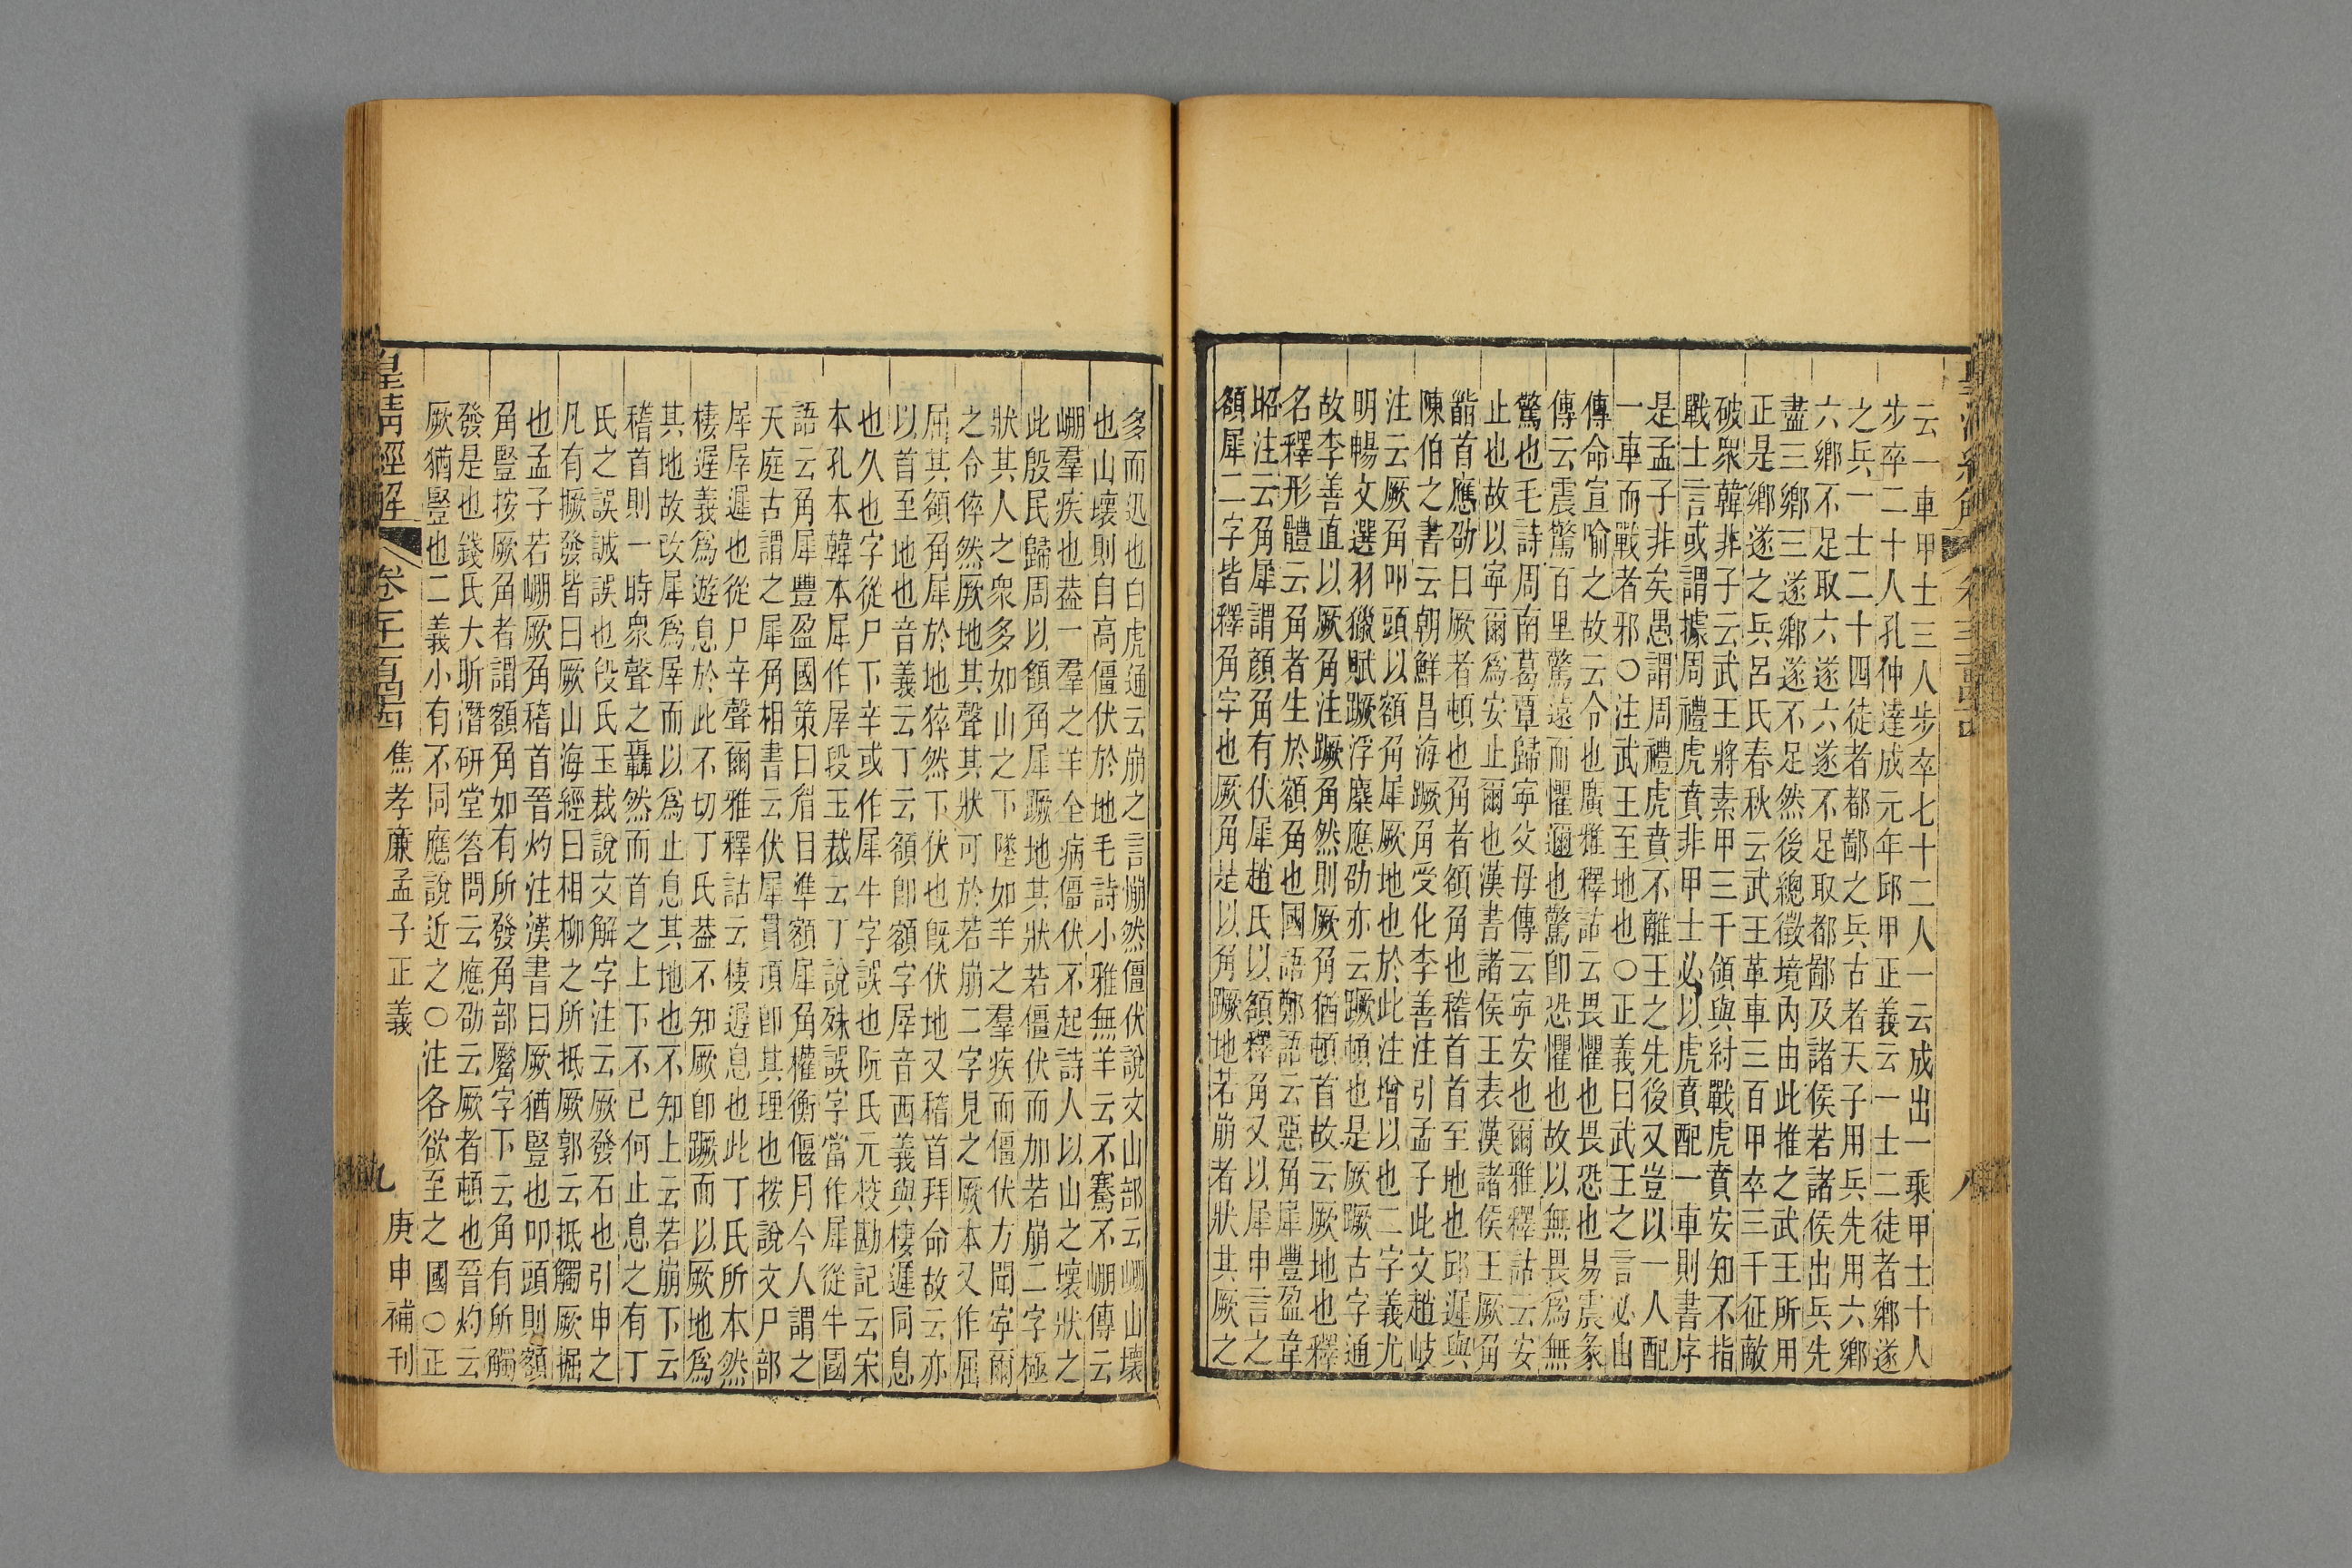 云一車甲士三人步卒七十二人一云成出一乘甲士十人
步卒二十人孔仲達成元年邱甲正義云一士二徒者鄉遂
之兵一士二十四徒者都鄙之兵古者天子用兵先用六鄉
六鄉不足取六遂六遂不足取都鄙及諸侯若諸侯出兵先
盡三鄉三遂鄉遂不足然後總徵境內由此推之武王所用
正是鄉遂之兵呂氏春秋云武王革車三百甲卒三千征敵
破衆韓非子云武王將素甲三千領與紂戰虎賁安知不指
戰士言或謂據周禮虎賁非甲士必以虎賁配一車則書序
是孟子非矣愚謂周禮虎賁不離王之先後又豈以一人配
一車而戰者邪○注武王至地也○正義曰武王之言必由
傳命宣喻之故云令也廣雅釋詁云畏懼也畏恐也易震彖
傳云震驚百里驚遠而懼邇也驚卽恐懼也故以無畏爲無
驚也毛詩周南葛覃歸寧父母傳云寧安也爾雅釋詁云安
止也故以寧爾爲安止爾也漢書諸侯王表漢諸侯王厥角
䭫首應劭曰厥者頓也角者額角也稽首首至地也邱遲與
陳伯之書云朝鮮昌海蹶角受化李善注引孟子此文趙岐
注云厥角叩頭以額角犀厥地也於此注增以也二字義尤
明暢文選羽獵賦蹶浮麋應劭亦云蹶頓也是厥蹶古字通
故李善直以厥角注蹶角然則厥角猶頓首故云厥地也釋
名釋形體云角者生於額角也國語鄭語云惡角犀豐盈韋
昭注云角犀謂顏角有伏犀趙氏以額釋角又以犀申言之
額犀二字皆釋角字也厥角是以角蹶地若崩者狀其厥之
多而迅也白虎通云崩之言㥊然僵伏說文山部云崩山壞
也山壞則自高僵伏於地毛詩小雅無羊云不騫不崩傳云
崩羣疾也葢一羣之羊全病僵伏不起詩人以山之壞狀之
此殷民歸周以額角犀蹶地其狀若僵伏而加若崩二字極
狀其人之衆多如山之下墜如羊之羣疾而僵伏方聞寧爾
之令倅然厥地其聲其狀可於若崩二字見之厥本又作屈
屈其額角犀於地猝然下伏也旣伏地又稽首拜命故云亦
以首至地也音義云丁云額卽額字犀音西義與棲遲同息
也久也字從尸下辛或作犀牛字誤也阮氏元校勘記云宋
本孔本韓本犀作屖段玉裁云丁說殊誤字當作犀從牛國
語云角犀豐盈國策曰眉目準額犀角權衡偃月今人謂之
天庭古謂之犀角相書云伏犀貫頂卽其理也按說文尸部
屖屖遲也從尸辛聲爾雅釋詁云棲遲息也此丁氏所本然
棲遲義爲遊息於此不切丁氏葢不知厥卽蹶而以厥地爲
其地故改犀爲屖而以爲止息其地也不知上云若崩下云
稽首則一時衆聲之轟然而首之上下不已何止息之有丁
氏之誤誠誤也段氏玉裁說文解字注云厥發石也引申之
凡有撅發皆曰厥山海經曰相柳之所抵厥郭云抵觸厥掘
也孟子若崩厥角稽首晉灼注漢書曰厥猶豎也叩頭則額
角豎按厥角者謂額角如有所發角部觺字下云角有所觸
發是也錢氏大昕潛研堂答問云應劭云厥者頓也晉灼云
厥猶豎也二義小有不同應說近之○注各欲至之國○正
皇淸經解 卷一千一百四十四 焦孝廉孟子正義 九 庚申補刊